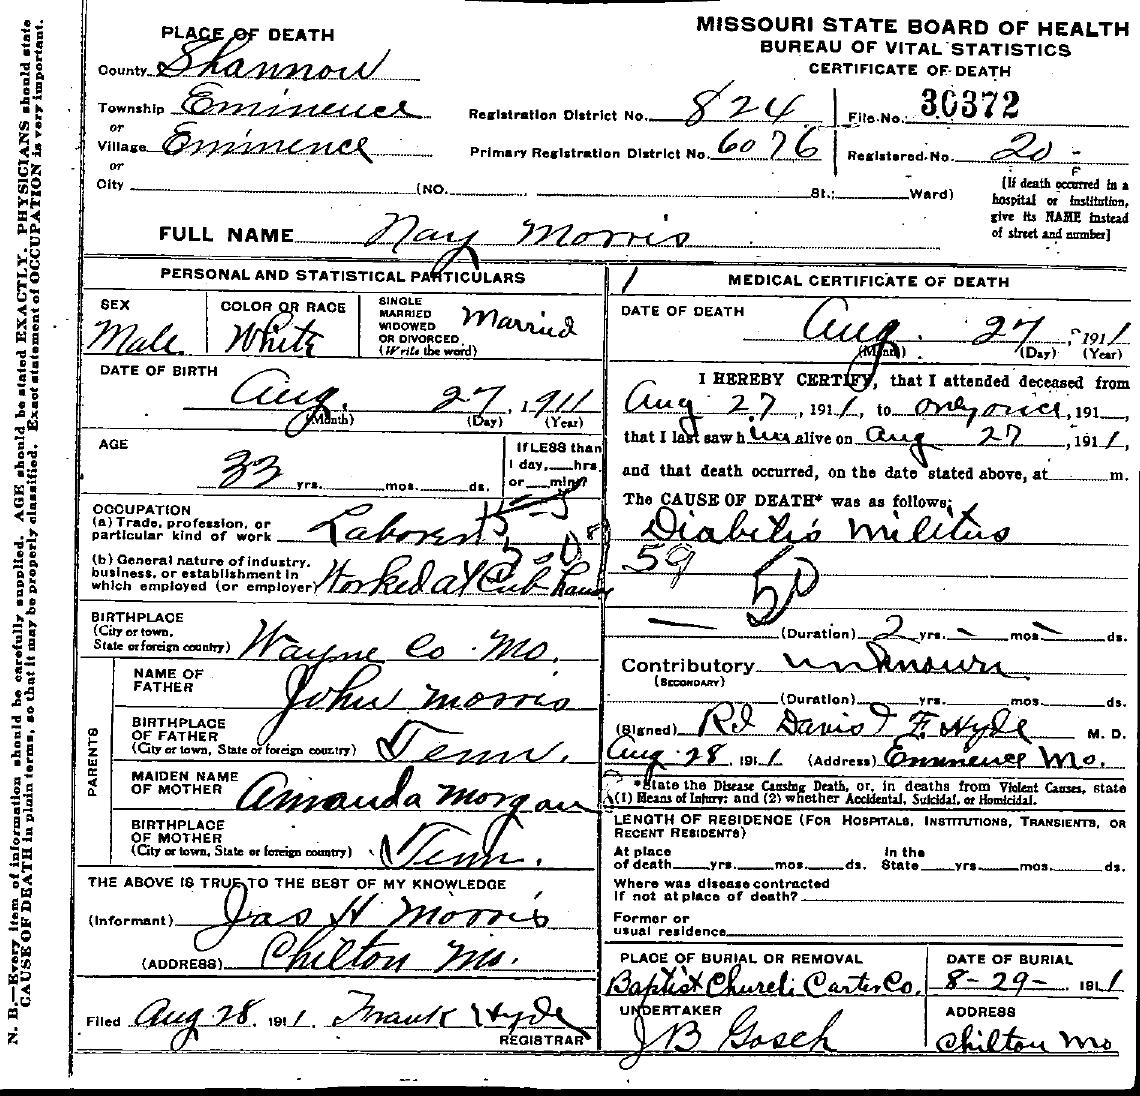 MISSOURI STATE BOARD OF HEALTH
BUREAU OF VITAL STATISTICS
CERTIFICATE OF DEATH
PLACE OF DEATH
County Shannon
Township Eminence
or
Village Eminence
or
City (NO. St.; Ward)
Registration District No. 824
Primary Registration District No. 6076
File No. 30372
Registered No. 20 -
[If death occurred in a
hospital or institution,
give its NAME instead
of street and number]
FULL NAME Nay Morris
PERSONAL AND STATISTICAL PARTICULARS
SEX
Male
COLOR OR RACE
White
SINGLE
MARRIED
WIDOWED
OR DIVORCED
(Write the word)
Married
DATE OF BIRTH
Aug. 27, 1911
(Month) (Day) (Year)
AGE
33 yrs. mos. ds.
If LESS than
1 day, hrs.
or min?
OCCUPATION
(a) Trade, profession, or
particular kind of work Laborer
(b) General nature of industry,
business, or establishment in
which employed (or employer) Worked at
BIRTHPLACE
(City or town,
State or foreign country) Wayne Co Mo.
PARENTS
NAME OF
FATHER John Morris
BIRTHPLACE
OF FATHER
(City or town, State or foreign country) Tenn.
MAIDEN NAME
OF MOTHER Amanda Morgan
BIRTHPLACE
OF MOTHER
(City or town, State or foreign country) Tenn.
THE ABOVE IS TRUE TO THE BEST OF MY KNOWLEDGE
(Informant) Jas H Morris
(ADDRESS) Chilton Mo.
Filed Aug 28, 1911 Frank Hyde
REGISTRAR
MEDICAL CERTIFICATE OF DEATH
DATE OF DEATH
Aug. 27, 1911
(Month) (Day) (Year)
I HEREBY CERTIFY, that I attended deceased from
Aug 27, 1911, to only once, 191 ,
that I last saw him alive on Aug 27, 1911,
and that death occurred, on the date stated above, at m.
The CAUSE OF DEATH* was as follows:
Diabitis Militus
59
50
(Duration) 2 yrs. - mos. - ds.
Contributory unknown
(SECONDARY)
(Duration) yrs. mos. ds.
(Signed) F. Hyde M. D.
Aug 28 1911 (Address) Eminence Mo.
*State the Disease Causing Death, or, in deaths from Violent Causes, state
(1) Means of Injury; and (2) whether Accidental, Suicidal, or Homicidal.
LENGTH OF RESIDENCE (FOR HOSPITALS, INSTITUTIONS, TRANSIENTS, OR
RECENT RESIDENTS)
At place In the
of death yrs. mos. ds. State yrs. mos. ds.
Where was disease contracted
if not at place of death?
Former or
usual residence
PLACE OF BURIAL OR REMOVAL
Baptist Church Carter Co.
DATE OF BURIAL
8-29-, 1911
UNDERTAKER
J B Gosch
ADDRESS
Chilton Mo
N. B.—Every item of information should be carefully supplied. AGE should be stated EXACTLY. PHYSICIANS should state
CAUSE OF DEATH in plain terms, so that it may be properly classified. Exact statement of OCCUPATION is very important.